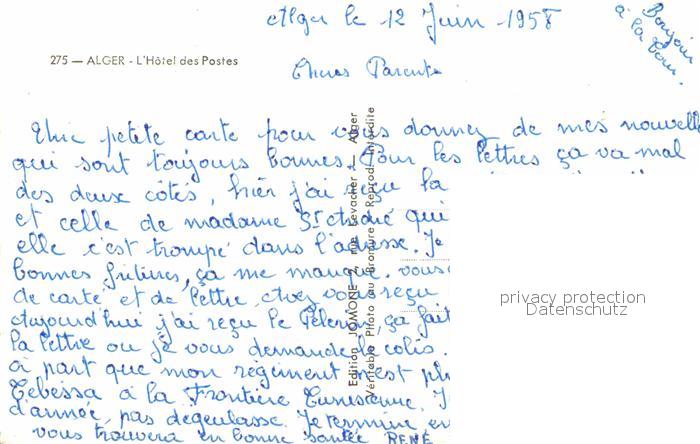 Alger le 12 Juin 1958
Bonjour
à la Cour.
275 — ALGER - L'Hôtel des Postes
Chers Parents
Une petite carte pour vous donner de mes nouvelles
qui sont toujours bonnes. Pour les lettres ça va mal
des deux côtés, hier j'ai reçu la
et celle de madame St André qui
elle c'est trompé dans l'adresse. Je
bonnes ça me manque. vous
de carte et de lettre avez vous reçu
aujourd'hui j'ai reçu le Pèlerin, ça fait
la lettre ou je vous demande le colis.
à part que mon régiment est
Tebessa à la Frontière Tunisienne.
d'année, pas dégeulasse. Je termine en
vous trouvera en bonne santée RENÉ
Edition JOMONE rue Levacher Alger
Véritable Photo au Bromure - Reprod. Interdite
privacy protection
Datenschutz